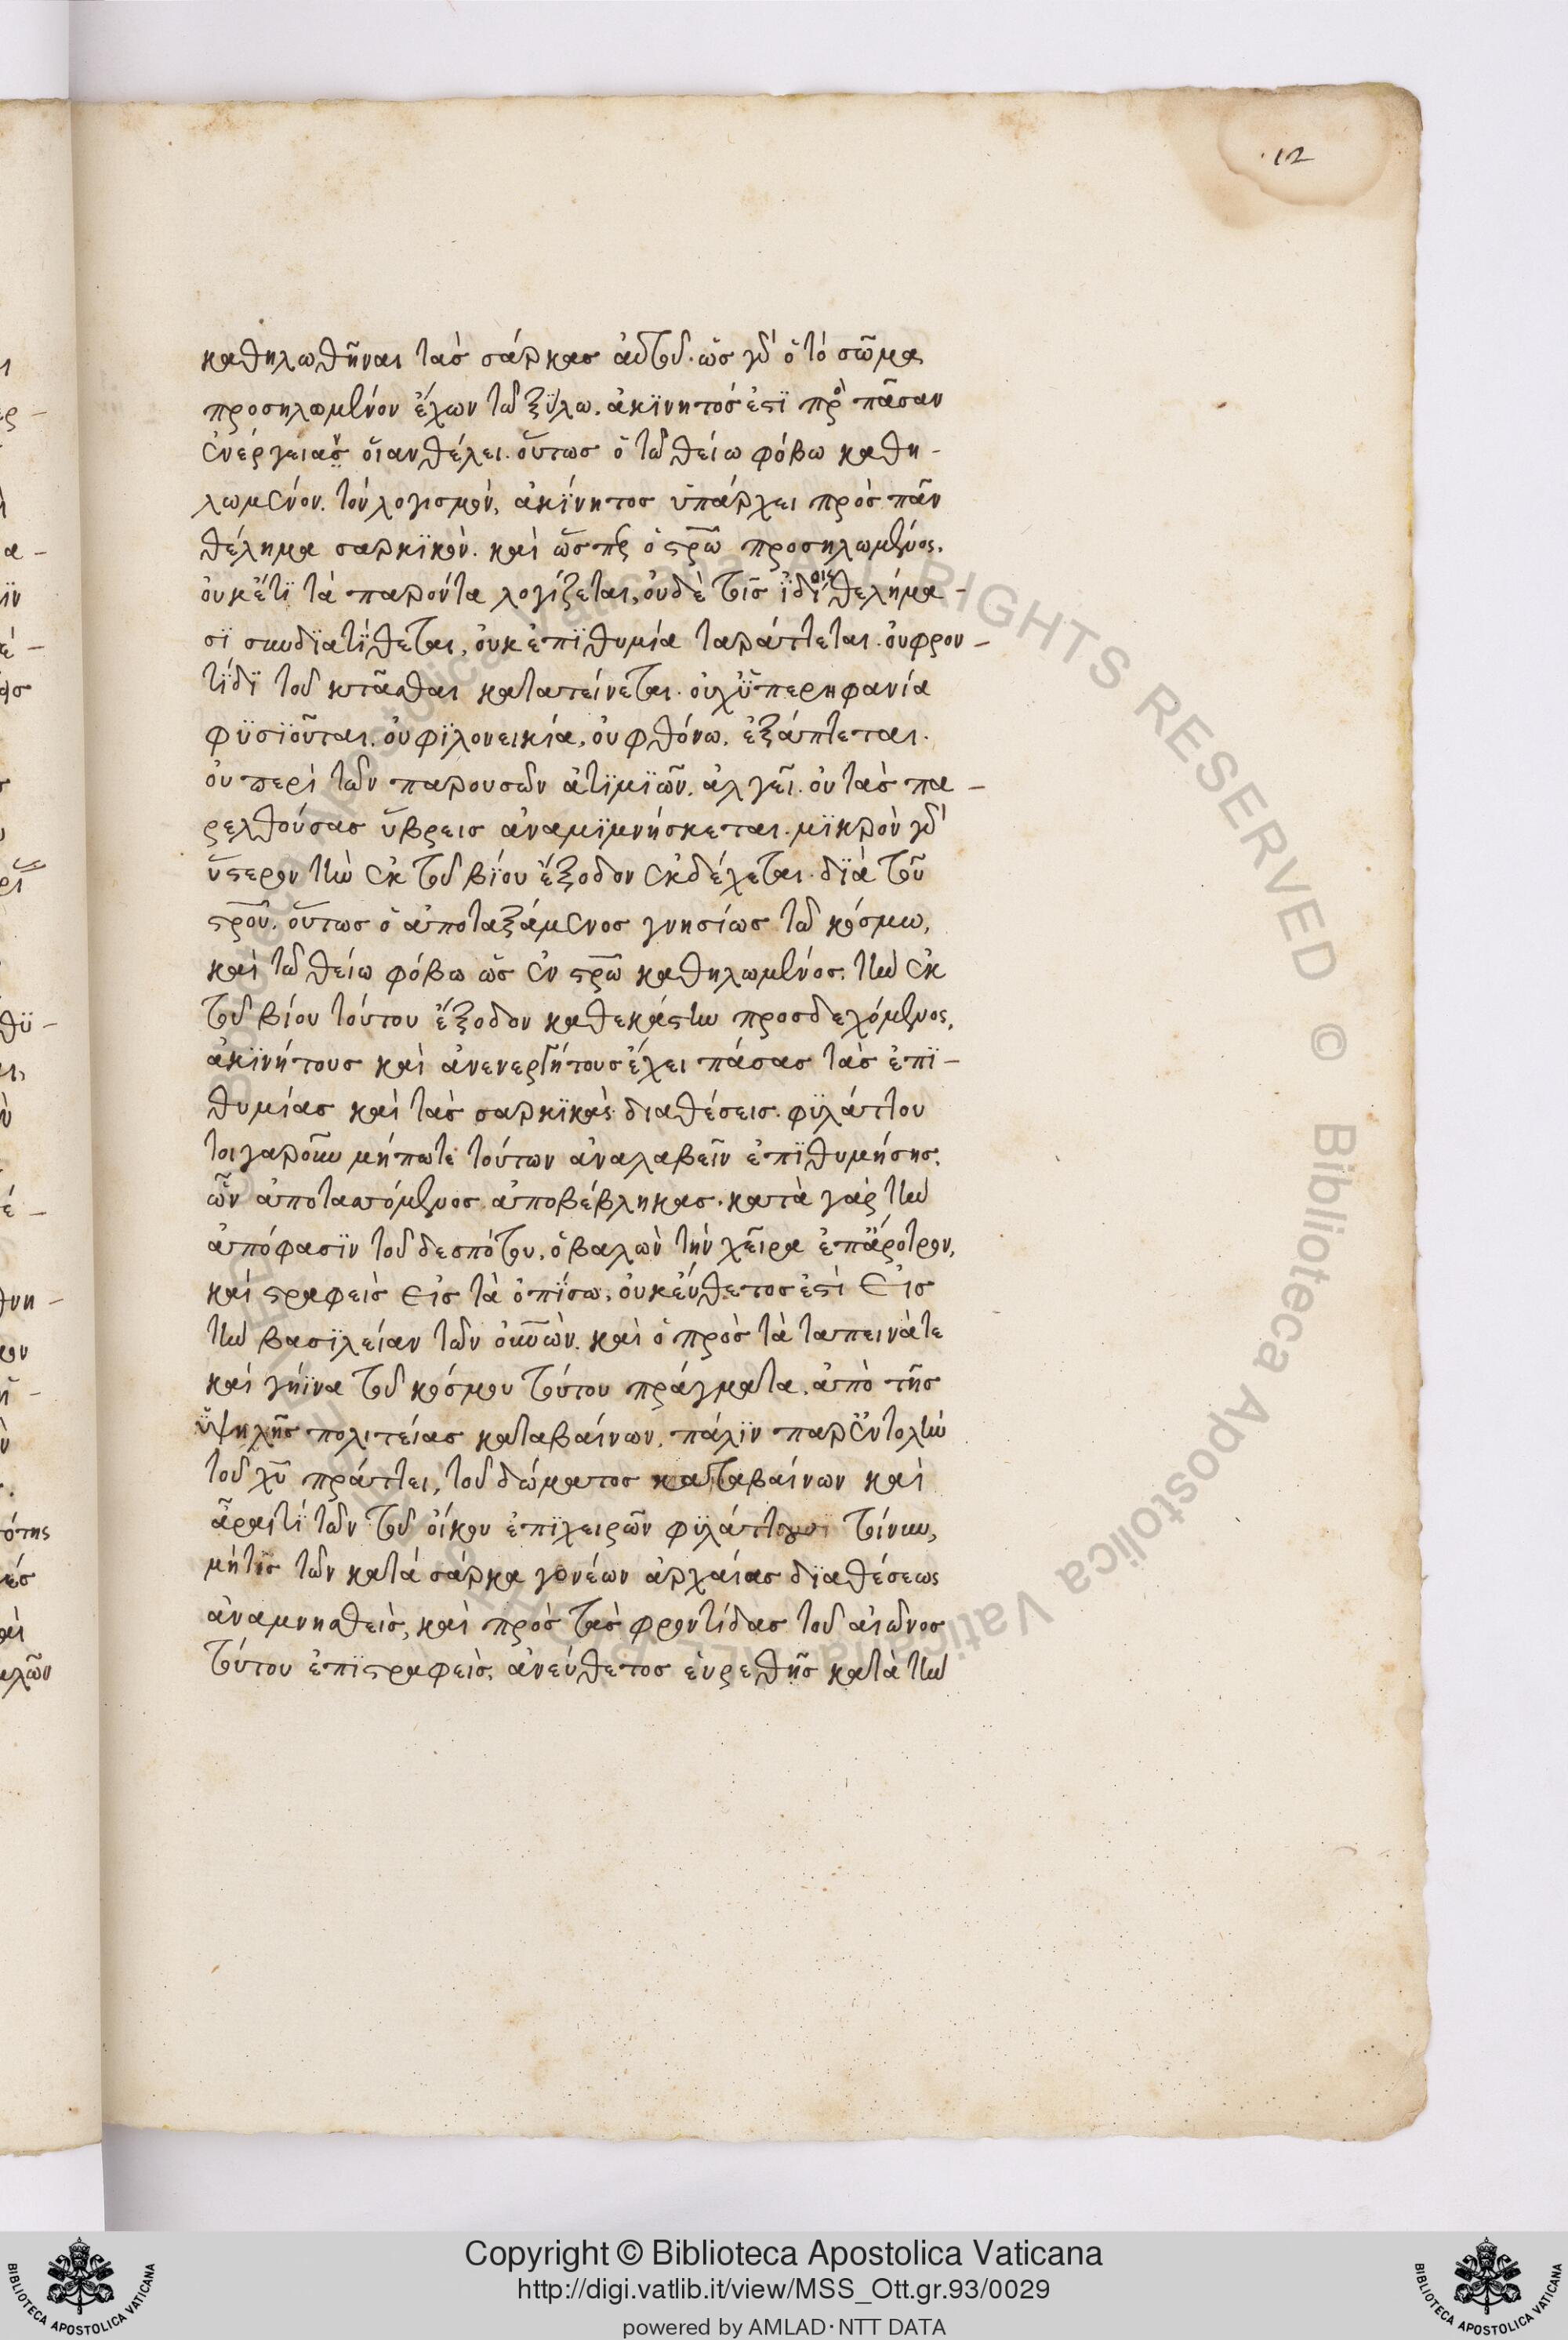 12
καθηλωθῆναι τὰσ σάρκασ ἀυτοῦ. ὥσ γὰρ ὁ τὸ σῶμα
προσηλωμένον ἔχων τῶ ξΰλω. ἀκϊνητόσ ἐστϊ πρὸ πᾶσαν
ἐνέργειαν οἵαν θέλει. οὕτωσ ὁ τῶ θείω φόβω καθη-
λωμένον. τὸν λογισμὸν, ἀκίνητοσ ὑπάρχει πρὸσ πᾶν
θέλημα σαρκϊκὸν. καὶ ὥσπερ ὁ στρῶ προσηλωμένος.
ὀυκέτϊ τὰ παρόντα λογίζεται, ὀυδὲ τοῖσ ἰδίοις θελήμα-
σϊ συνδϊατϊθεται, ὀυκ ἐπϊθυμία ταράττεται. ὀυ φρον-
τίδϊ τοῦ κτᾶσθαι κατατείνεται. ὀυχ ὑπερηφανία
φϋσϊοῦται. ὀυ φϊλονεικία, ὀυ φθόνω, ἐξάπτεται.
ὀυ περὶ τῶν παρουσῶν ἀτϊμϊῶν, ἀλγεῖ. ὀυ τὰσ πα-
ρελθούσασ ὕβρεισ ἀναμϊμνήσκεται. μϊκρὸν γὰρ
ὕστερον τὴν ἐκ τοῦ βίου ἔξοδον ἐκδέχεται. δϊὰ τοῦ
στροῦ. οὕτωσ ὁ ἀποταξάμενοσ γνησίωσ τῶ κόσμω,
καὶ τῶ θείω φόβω ὡσ ἐν στρῶ καθηλωμένοσ. τὴν ἐκ
τοῦ βίου τούτου ἔξοδον καθεκάστην προσδεχόμενος,
ἀκϊνήτουσ καὶ ἀνενεργήτουσ ἔχει πάσασ τὰσ ἐπϊ-
θυμίασ καὶ τὰσ σαρκϊκὰς διαθέσεισ. φϋλάττου
τοιγαροῦν μήποτε τούτων ἀναλαβεῖν ἐπϊθυμήσησ.
ὧν ἀποταττόμενοσ ἀποβέβληκασ. κατὰ γὰρ τὴν
ἀπόφασϊν τοῦ δεσπότου, ὁ βαλὼν τὴν χεῖρα ἐπ' ἄροτρον,
καὶ στραφεὶσ εἰσ τὰ ὀπϊσω, ὀυκ ἔυθετοσ ἐστὶ εἰσ
τὴν βασϊλείαν τῶν ὀυνῶν. καὶ ὁ πρὸσ τὰ ταπεινὰ τε
καὶ γήϊνα τοῦ κόσμου τούτου πράγματα, ἀπὸ τῆσ
ὑψηλῆσ πολιτείασ καταβαίνων, πάλϊν παρ ἐντολὴν
τοῦ χῦ πράττει, τοῦ δώματοσ καταβαίνων καὶ
ἆραί τϊ τῶν τοῦ οἴκου ἐπϊχειρῶν φϋλάττου τοίνυν,
μήτϊσ τῶν κατὰ σάρκα γονέων ἀρχαίασ δϊαθέσεως
ἀναμνησθεὶσ, καὶ πρὸσ τὰσ φροντίδασ τοῦ αἰῶνοσ
τούτου ἐπϊστραφεὶσ, ἀνεύθετοσ ἑυρεθῆσ κατὰ τὴν
Copyright © Biblioteca Apostolica Vaticana
http://digi.vatlib.it/view/MSS_Ott.gr.93/0029
powered by AMLAD·NTT DATA